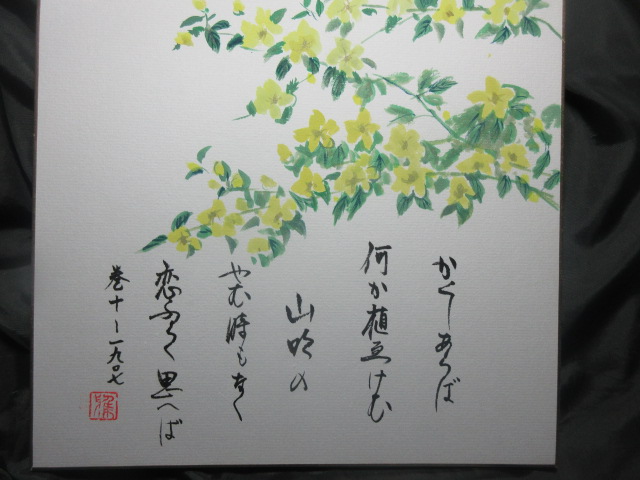 かくしあらば
何か植ゑけむ
山吹の
やむ時もなく
恋ふらく思へば
巻十ー一九〇七